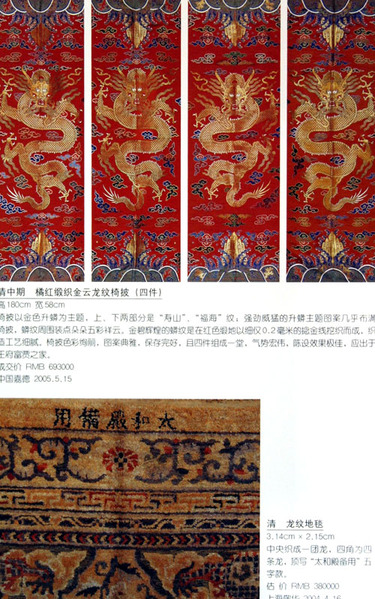 清中期　橘红缎织金云龙纹椅披（四件）
高180cm 宽58cm
椅披以金色升蟒为主题，上、下两部分是“寿山”、“福海”纹，强劲威猛的升蟒主题图案几乎布满
椅披，蟒纹周围装点朵朵五彩祥云。金碧辉煌的蟒纹是在红色缎地以细仅0.2毫米的捻金线挖织而成，织
造工艺细腻，椅披色彩绚丽，图案典雅，保存完好，且四件组成一堂，气势宏伟，陈设效果极佳，应出于
王府富贾之家。
成交价 RMB 693000
中国嘉德 2005.5.15
用备殿和太
清　龙纹地毯
3.14cm × 2.15cm
中央织成一团龙，四角为四
条龙，顶写“太和殿备用”五
字款。
估 价 RMB 380000